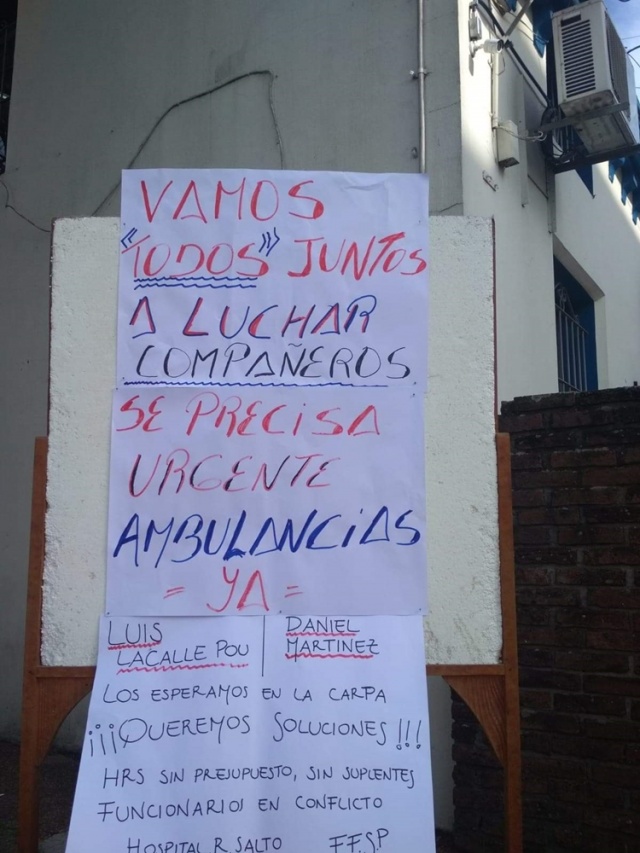 VAMOS
"TODOS" JUNTOS
A LUCHAR
COMPAÑEROS
SE PRECISA
URGENTE
AMBULANCIAS
= YA =
LUIS
LACALLE POU
DANIEL
MARTINEZ
LOS ESPERAMOS EN LA CARPA
¡¡¡QUEREMOS SOLUCIONES!!!
HRS SIN PRESUPUESTO, SIN SUPLENTES
FUNCIONARIOS EN CONFLICTO
HOSPITAL R. SALTO F.F.S.P